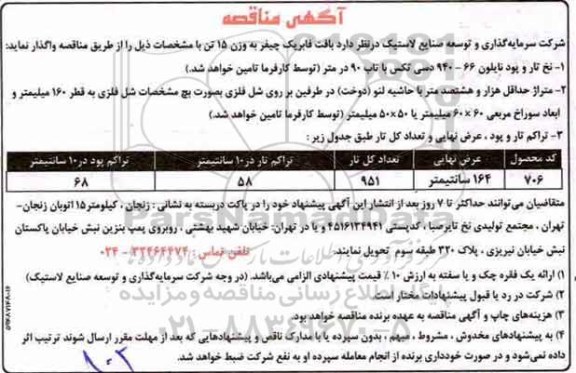 آگهی مناقصه
شرکت سرمایه‌گذاری و توسعه صنایع لاستیک درنظر دارد بافت فابریک چیفر به وزن ۱۵ تن با مشخصات ذیل را از طریق مناقصه واگذار نماید:
۱- نخ تار و پود نایلون ۶۶ – ۹۴۰ دسی تکس با تاب ۹۰ در متر (توسط کارفرما تامین خواهد شد.)
۲- متراژ حداقل هزار و هشتصد متر با حاشیه لنو (دوخت) در طرفین بر روی شل فلزی بصورت پیچ مشخصات شل فلزی به قطر ۱۶۰ میلیمتر و
ابعاد سوراخ مربعی ۶۰×۶۰ میلیمتر یا ۵۰×۵۰ میلیمتر (توسط کارفرما تامین خواهد شد.)
۳- تراکم تار و پود ، عرض نهایی و تعداد کل تار طبق جدول زیر :
کد محصول عرض نهایی تعداد کل تار تراکم تار در۱۰ سانتیمتر تراکم پود در۱۰ سانتیمتر
۷۰۶ ۱۶۴ سانتیمتر ۹۵۱ ۵۸ ۶۸
متقاضیان می‌توانند حداکثر تا ۷ روز بعد از انتشار این آگهی پیشنهاد خود را در پاکت دربسته به نشانی : زنجان ، کیلومتر۱۵ اتوبان زنجان-
تهران ، مجتمع تولیدی نخ تایرصبا ، کدپستی ۴۵۱۶۱۳۴۹۴۱ و یا در تهران- خیابان شهید بهشتی ، روبروی پمپ بنزین نبش خیابان پاکستان
نبش خیابان تبریزی ، پلاک ۳۲۰ طبقه سوم تحویل نمایند. تلفن تماس ۳۳۴۶۴۴۷۴ – ۰۲۴
۱) ارائه یک فقره چک و یا سفته به ارزش ۱۰ ٪ قیمت پیشنهادی الزامی می‌باشد. (در وجه شرکت سرمایه‌گذاری و توسعه صنایع لاستیک)
۲) شرکت در رد یا قبول پیشنهادات مختار است.
۳) هزینه‌های چاپ و آگهی مناقصه به عهده برنده مناقصه خواهد بود.
۴) به پیشنهادهای مخدوش ، مشروط ، مبهم ، بدون سپرده یا با مدارک ناقص و پیشنهادهایی که بعد از مهلت مقرر ارسال شوند ترتیب اثر
داده نمی‌شود و در صورت خودداری برنده از انجام معامله سپرده او به نفع شرکت ضبط خواهد شد.
ParsNamadData
۰۲۱-۸۸۳۴۹۶۷۰-۵
۱۰۳